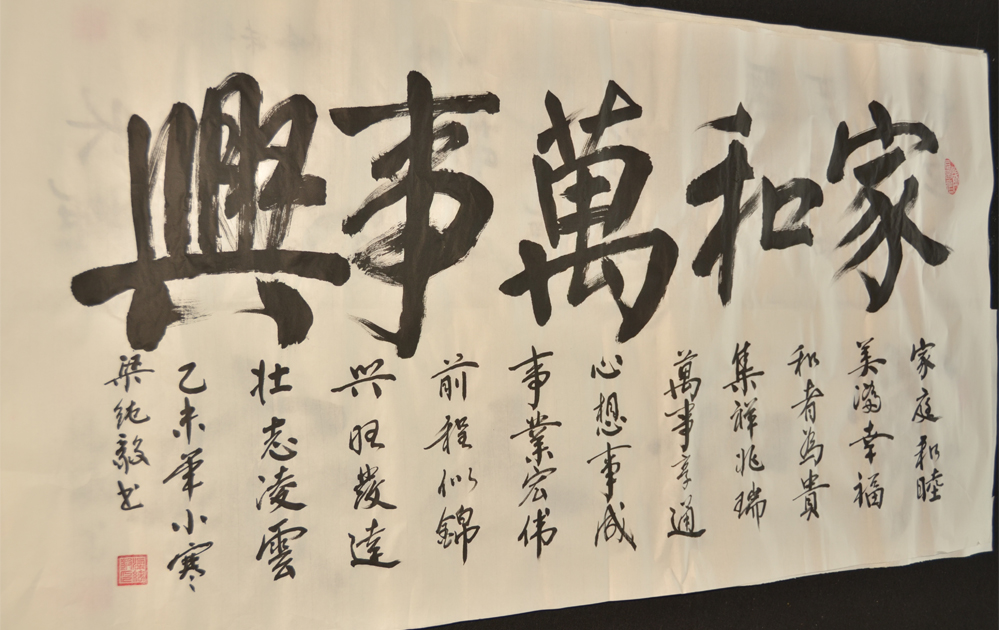 家和萬事興
家庭和睦
美滿幸福
和者為貴
集祥兆瑞
萬事享通
心想事成
事業宏伟
前程似錦
興旺發達
壯志凌雲
乙未年小寒
梁純毅书